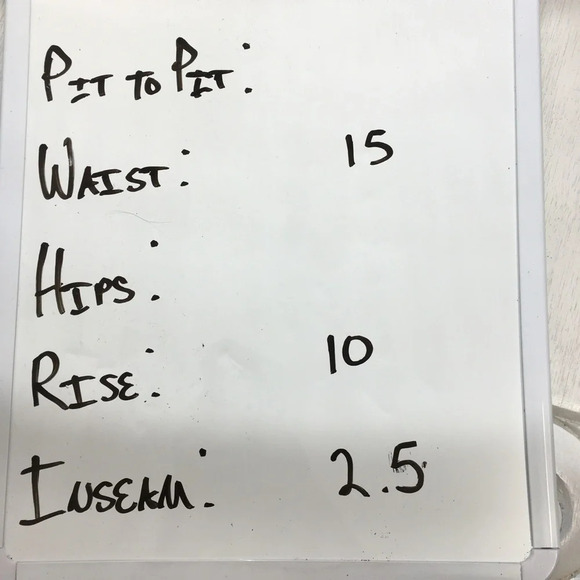 PIT TO PIT:
WAIST: 15
HIPS:
RISE: 10
INSEAM: 2.5